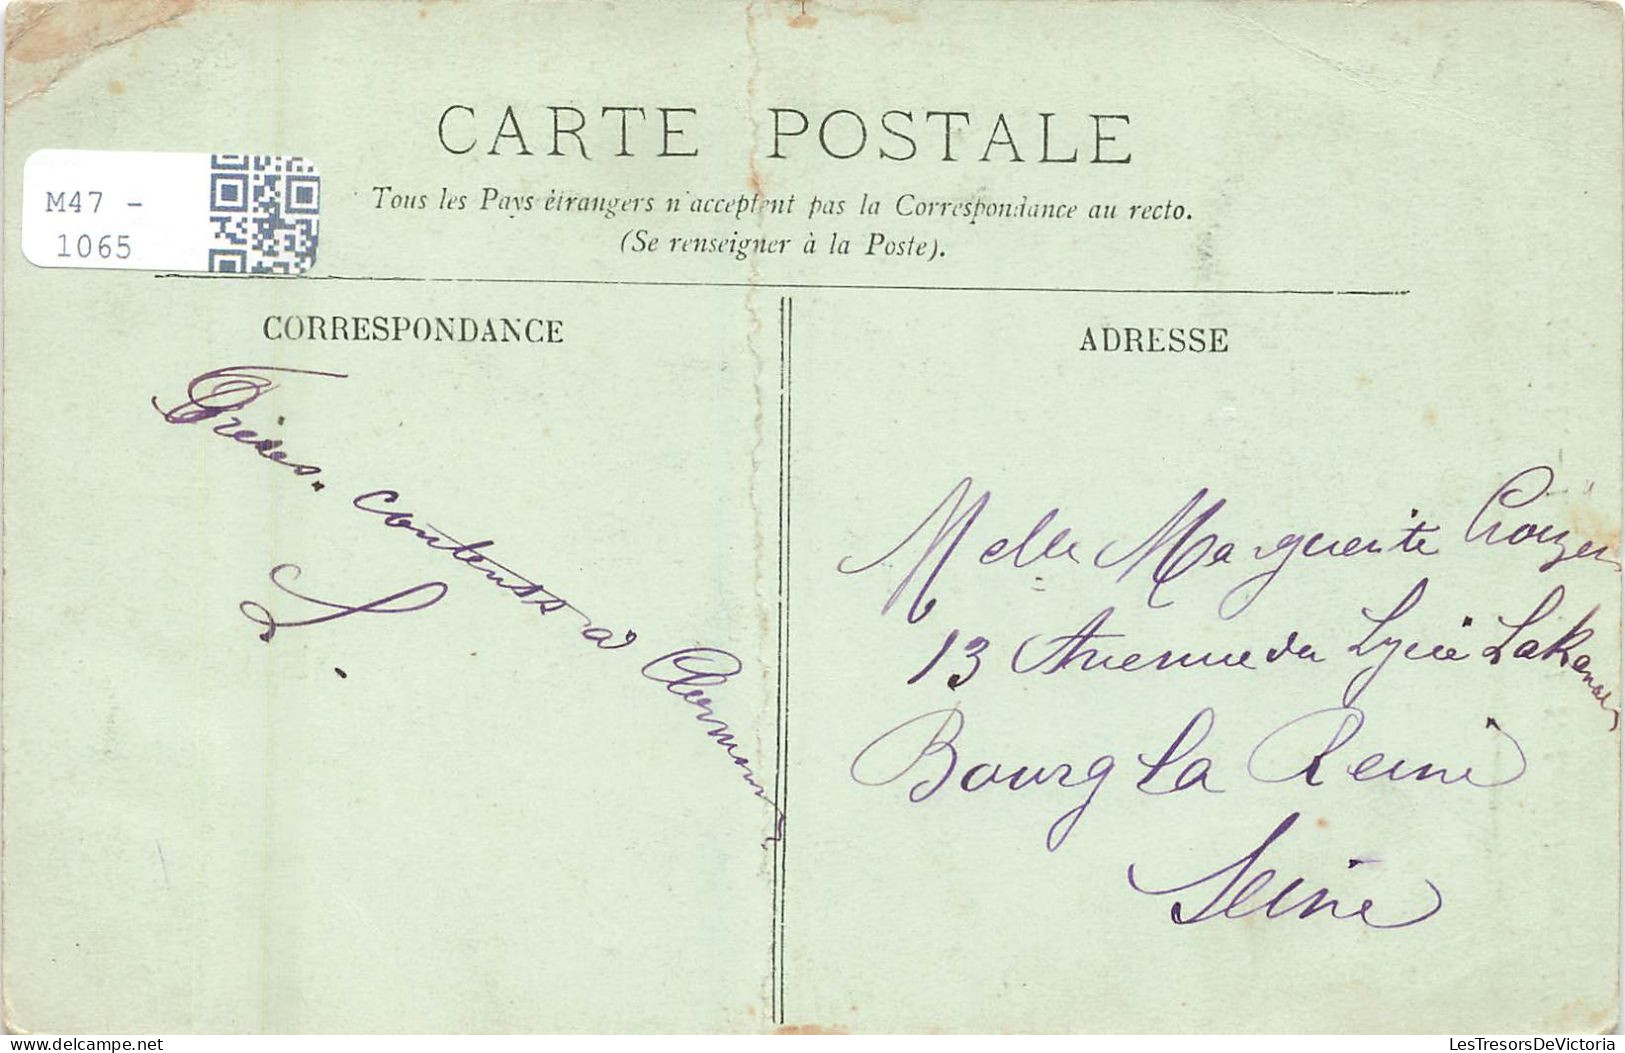 CARTE POSTALE
Tous les Pays étrangers n'acceptent pas la Correspondance au recto.
(Se renseigner à la Poste).
M47 -
1065
CORRESPONDANCE
contents à
L.
ADRESSE
Melle Marguerite
13 Avenue du Lycée Lakanal
Bourg la Reine
Seine
LesTresorsDeVictoria
delcampe.net